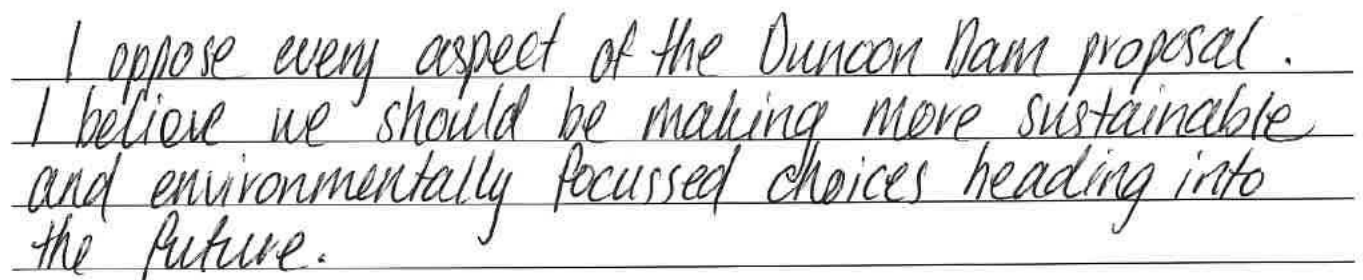 I oppose every aspect of the Dunoon Dam proposal.
I believe we should be making more sustainable
and environmentally focussed choices heading into
the future.